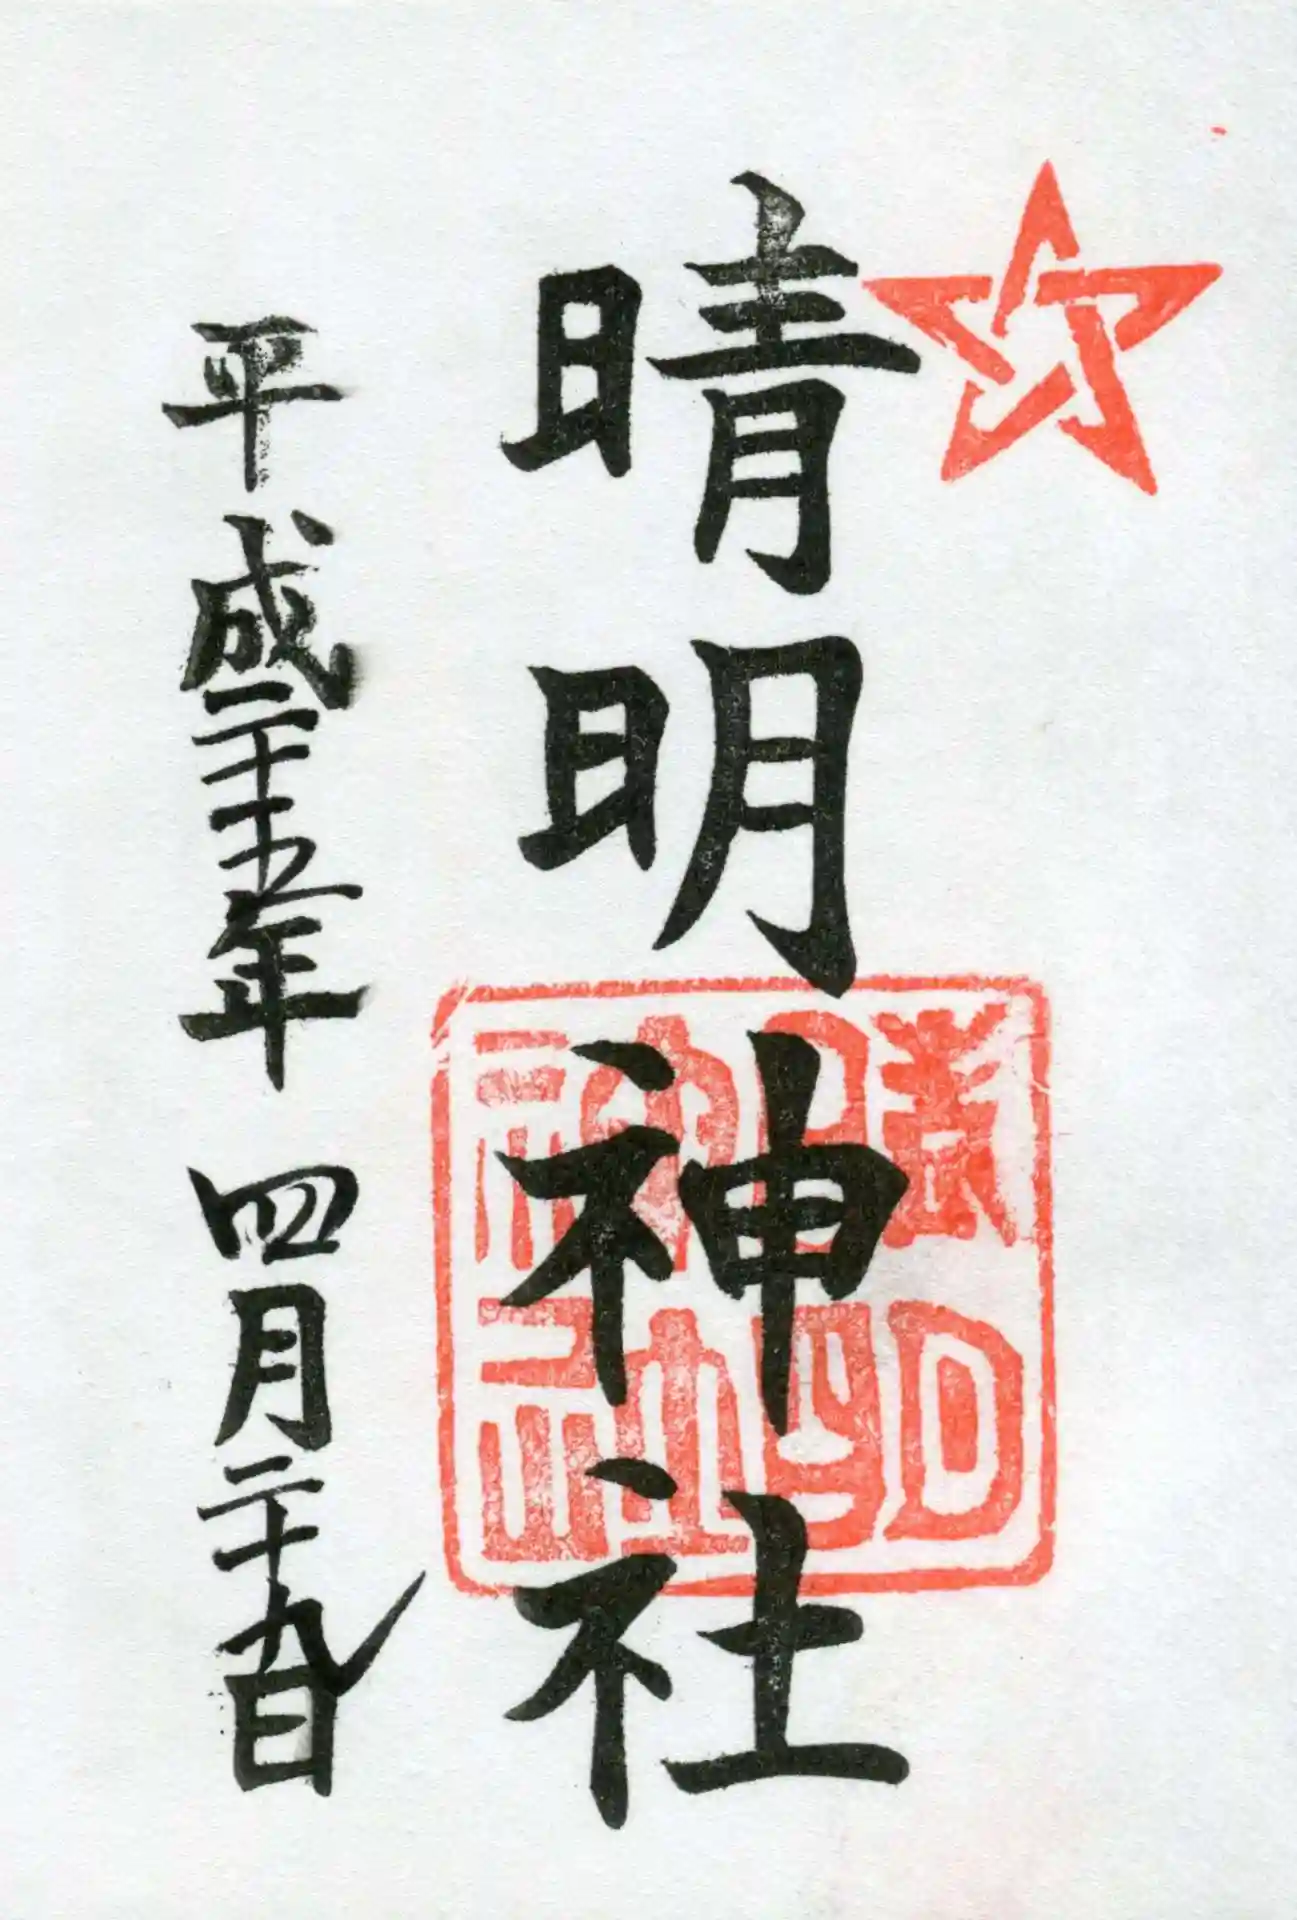 晴明神社
平成二十五年 四月二十九日